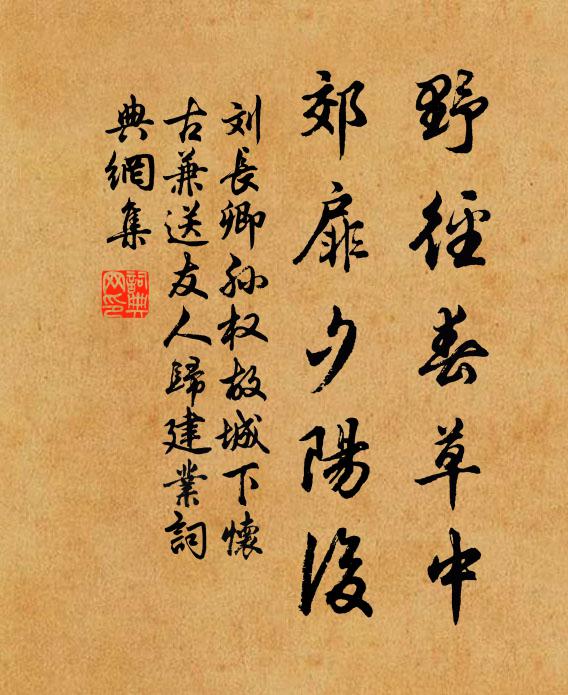 野徑春草中
郊扉夕陽後
刘長卿孙权故城下懷
古兼送友人歸建業詞
典網集
詞典网印